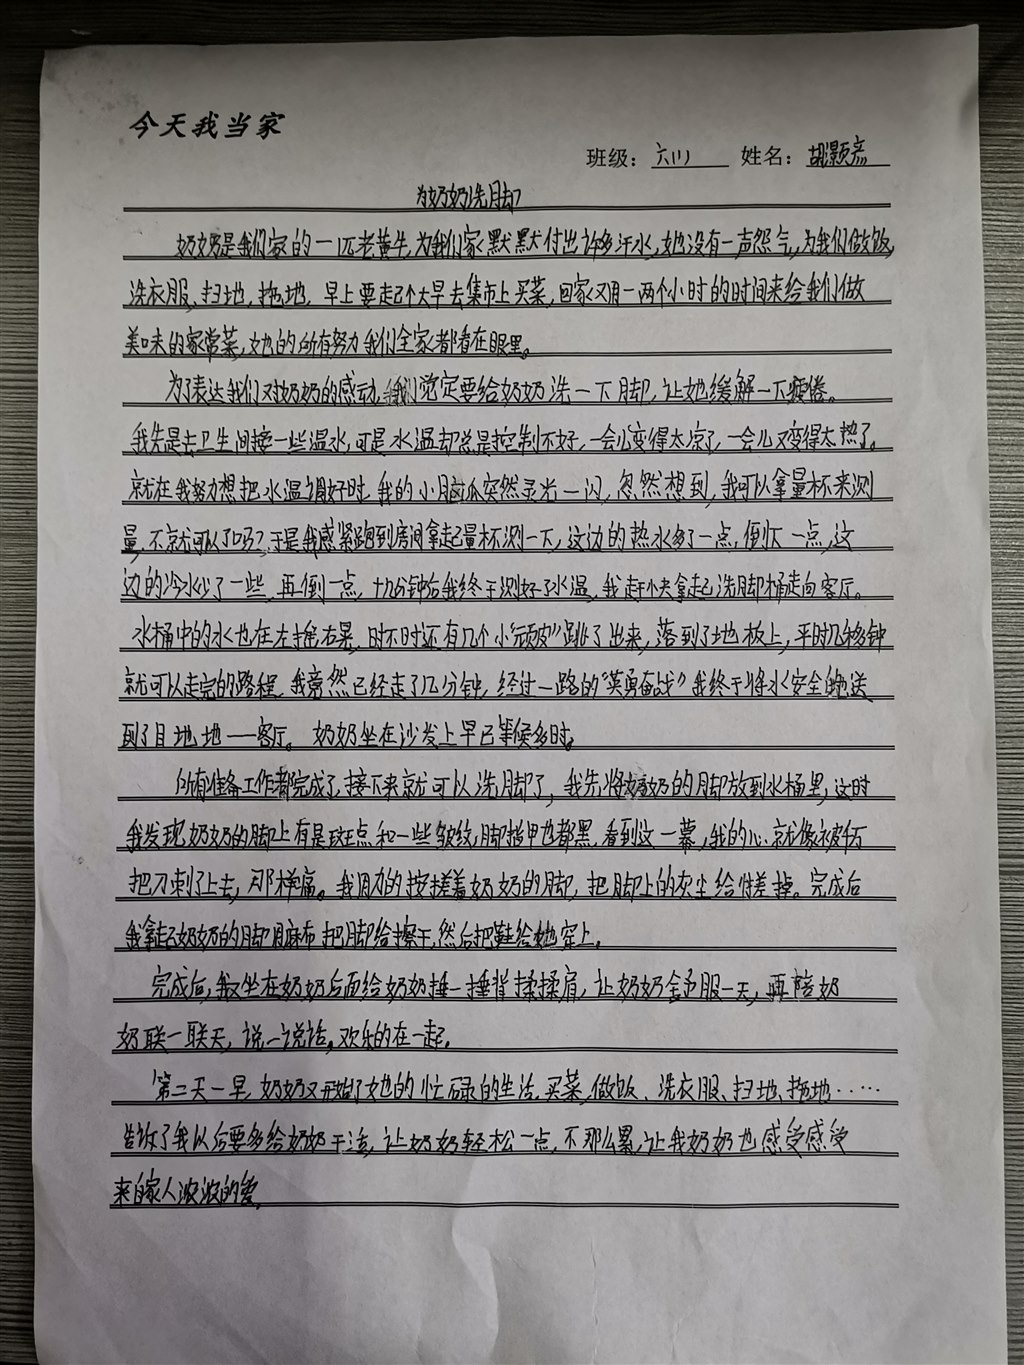 今天我当家
班级：六(1) 姓名：胡灏彦
为奶奶洗脚
奶奶是我们家的一匹老黄牛,为我们家默默付出许多汗水,她没有一声怨气,为我们做饭,
洗衣服、扫地、拖地。早上要起个大早去集市上买菜,回家又用一两个小时的时间来给我们做
美味的家常菜,她的所有努力我们全家都看在眼里。
为了表达我们对奶奶的感动,我们觉定要给奶奶洗一下脚,让她缓解一下疲倦。
我先是去卫生间接一些温水,可是水温却总是控制不好,一会儿变得太凉了,一会儿又变得太热了。
就在我努力想把水温调好时,我的小脑瓜突然灵光一闪,忽然想到,我可以拿量杯来测
量,不就可以了吗？于是我感紧跑到房间拿起量杯测一下,这边的热水多了一点,倒下一点,这
边的冷水少了一些,再倒一点,十几分钟后我终于测好了水温,我赶忙拿起洗脚桶走向客厅。
水桶中的水也在左摇右晃,时不时还有几个小“顽皮”跳了出来,落到了地板上,平时几秒钟
就可以走完的路程,我竟然已经走了几分钟,经过一路的“英勇奋战”我终于将水安全的送
到了目地地——客厅。奶奶坐在沙发上早已等候多时。
所有准备工作都完成了,接下来就可以洗脚了,我先将奶奶的脚放到水桶里,这时
我发现奶奶的脚上有是斑点和一些皱纹,脚指甲也都黑,看到这一幕,我的心就像被万
把刀刺了上去,那样痛。我用力的按搓着奶奶的脚,把脚上的灰尘给搓掉。完成后
我拿起奶奶的脚用麻布把脚给擦干,然后把鞋给她穿上。
完成后,我又坐在奶奶后面给奶奶捶一捶背揉揉肩,让奶奶舒服一天,再陪奶
奶联一联天,说一说话,欢乐的在一起。
第二天一早,奶奶又开始了她的忙碌的生活,买菜,做饭、洗衣服、扫地、拖地……
告诉了我以后要多给奶奶干活,让奶奶轻松一点,不那么累,让我奶奶也感受感受
来自家人浓浓的爱。